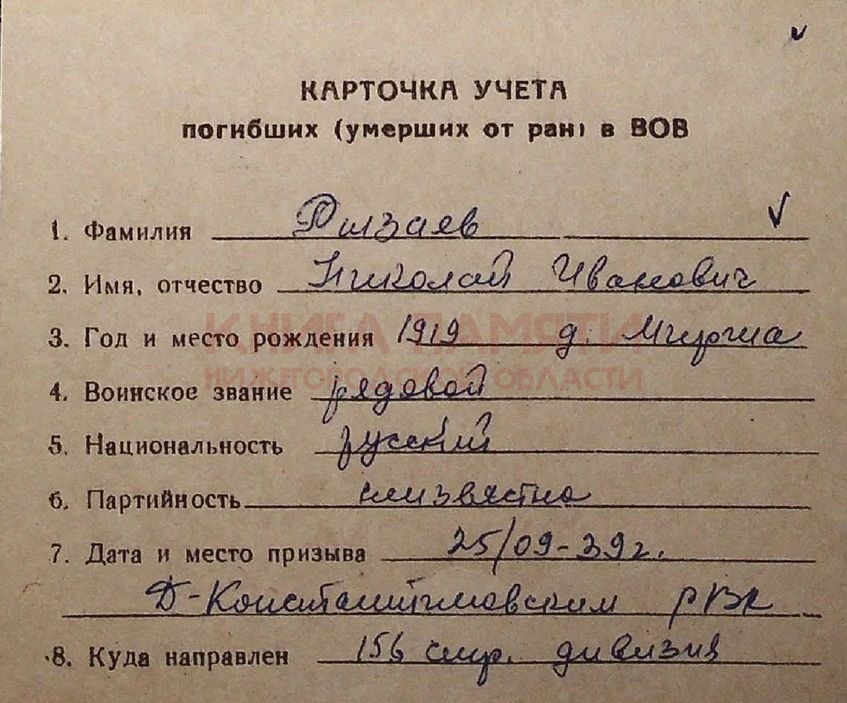 КАРТОЧКА УЧЕТА
погибших (умерших от ран) в ВОВ
1. Фамилия Рызаев
2. Имя, отчество Николай Иванович
3. Год и место рождения 1919 д.
КНИГА ПАМЯТИ
НИЖЕГОРОДСКОЙ ОБЛАСТИ
4. Воинское звание рядовой
5. Национальность русский
6. Партийность неизвестна
7. Дата и место призыва 25/09-39г.
Д-Константиновским РВК
8. Куда направлен 156 стр. дивизия